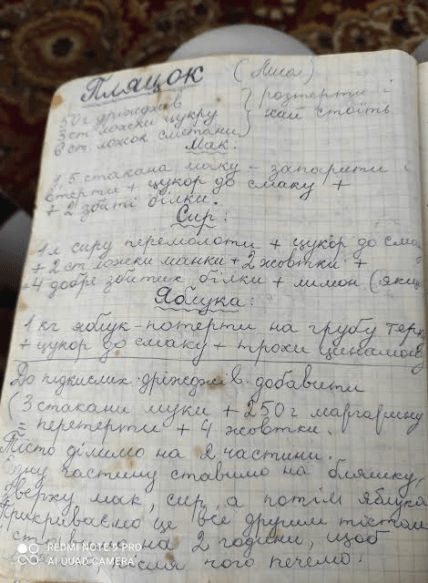 Пляцок
50г дріжджів
3 ст ложки цукру } розтерти і
6 ст. ложок сметани } хай стоїть
Мак:
1,5 стакана маку - запарити і
втерти + цукор до смаку +
+ 2 збиті білки.
Сир:
1л сиру перемолоти + цукор до
+ 2 ст ложки манки + 2 жовтки +
4 добре збитих білки + лимон
Яблука:
1 кг яблук - потерти на грубу
+ цукор до смаку + трохи цинамону
До підкислих дріжджів добавити
(3 стакани муки + 250г маргарину
= перетерти + 4 жовтки.
Тісто ділимо на 2 частини.
частину ставимо на бляшку,
зверху мак, сир, а потім яблука
Прикриваємо це все другим тістом
ставимо на 2 години, щоб
чого печемо.
REDMI NOTE 9 PRO
AI QUAD CAMERA